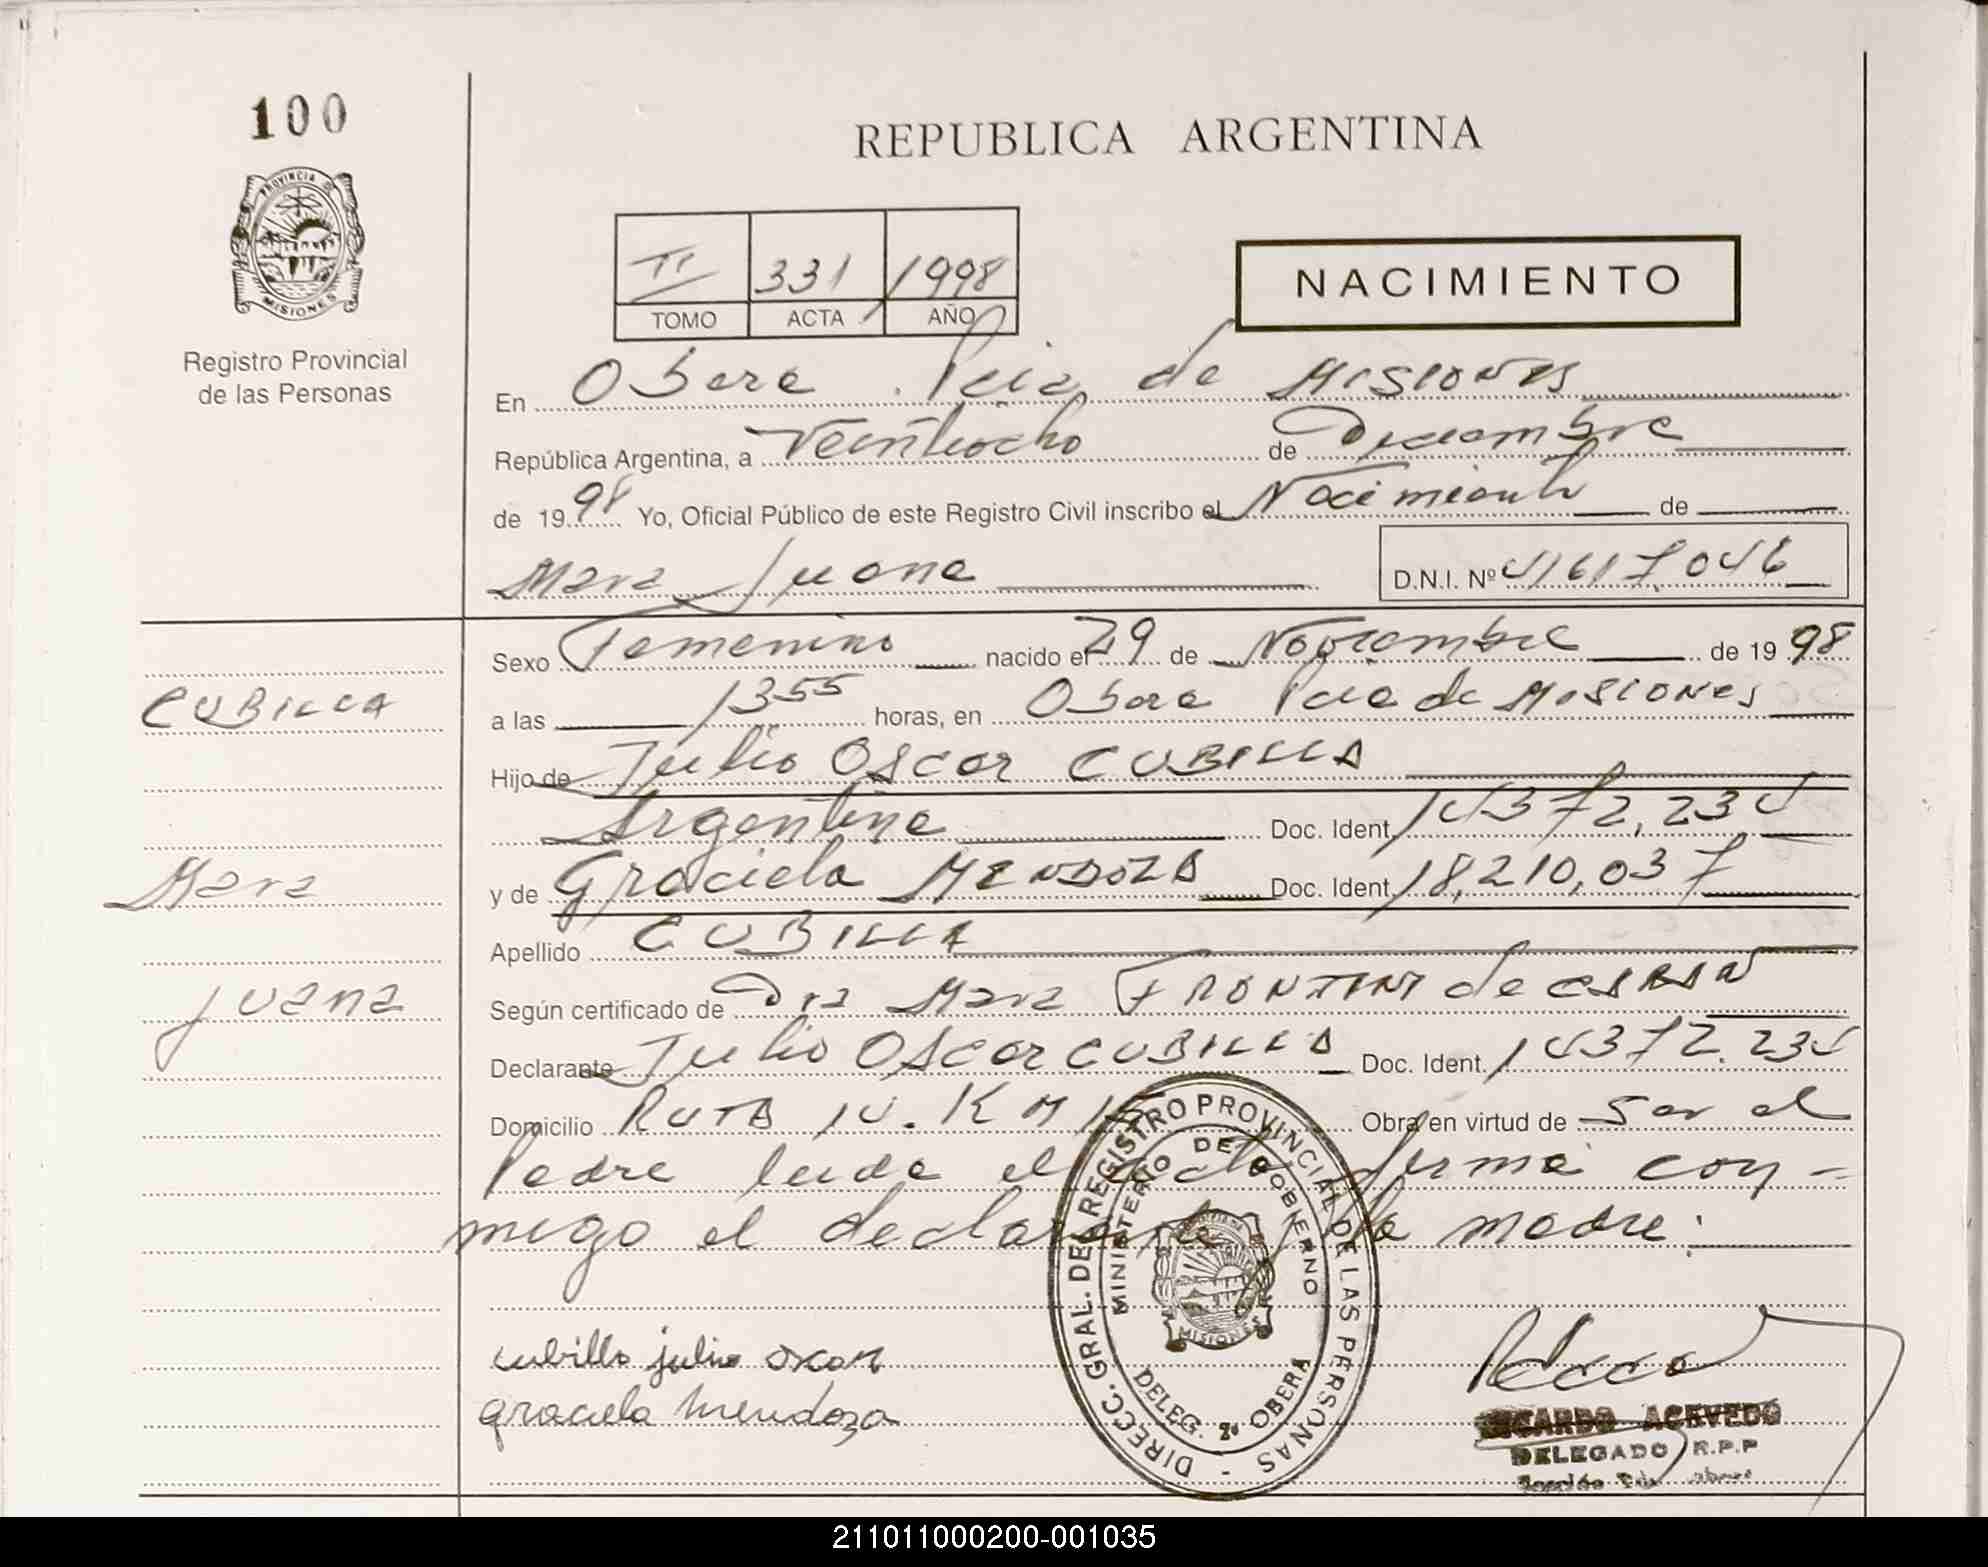 100
REPUBLICA ARGENTINA
PROVINCIA DE
MISIONES
Registro Provincial
de las Personas
II 331 1998
TOMO ACTA AÑO
NACIMIENTO
En Obera Pcia de MISIONES
República Argentina, a Veintiocho de Diciembre
de 1998 Yo, Oficial Público de este Registro Civil inscribo el Nacimiento de
Mara Juana D.N.I. Nº 41617.046
Sexo Femenino nacido el 29 de Noviembre de 1998
CUBILLA
a las 1355 horas, en Obera Pcia de MISIONES
Hijo de Julio Oscar CUBILLA
Argentina Doc. Ident. 14372.234
Mara
y de Graciela MENDOZA Doc. Ident. 18.210.037
Apellido CUBILLA
Juana
Según certificado de Dra Mara FRONTINI de
Declarante Julio Oscar CUBILLA Doc. Ident. 14372.234
Domicilio RUTA 14. KM 15 Obra en virtud de Ser el
Padre leida el acta firma con-
migo el declarante y la madre:
DIRECC. GRAL. DEL REGISTRO PROVINCIAL DE LAS PERSONAS -
MINISTERIO DE GOBIERNO
MISIONES
DELEG. 2ª OBERA
cubilla julio oscar
graciela mendoza
RICARDO ACEVEDO
DELEGADO R.P.P
211011000200-001035